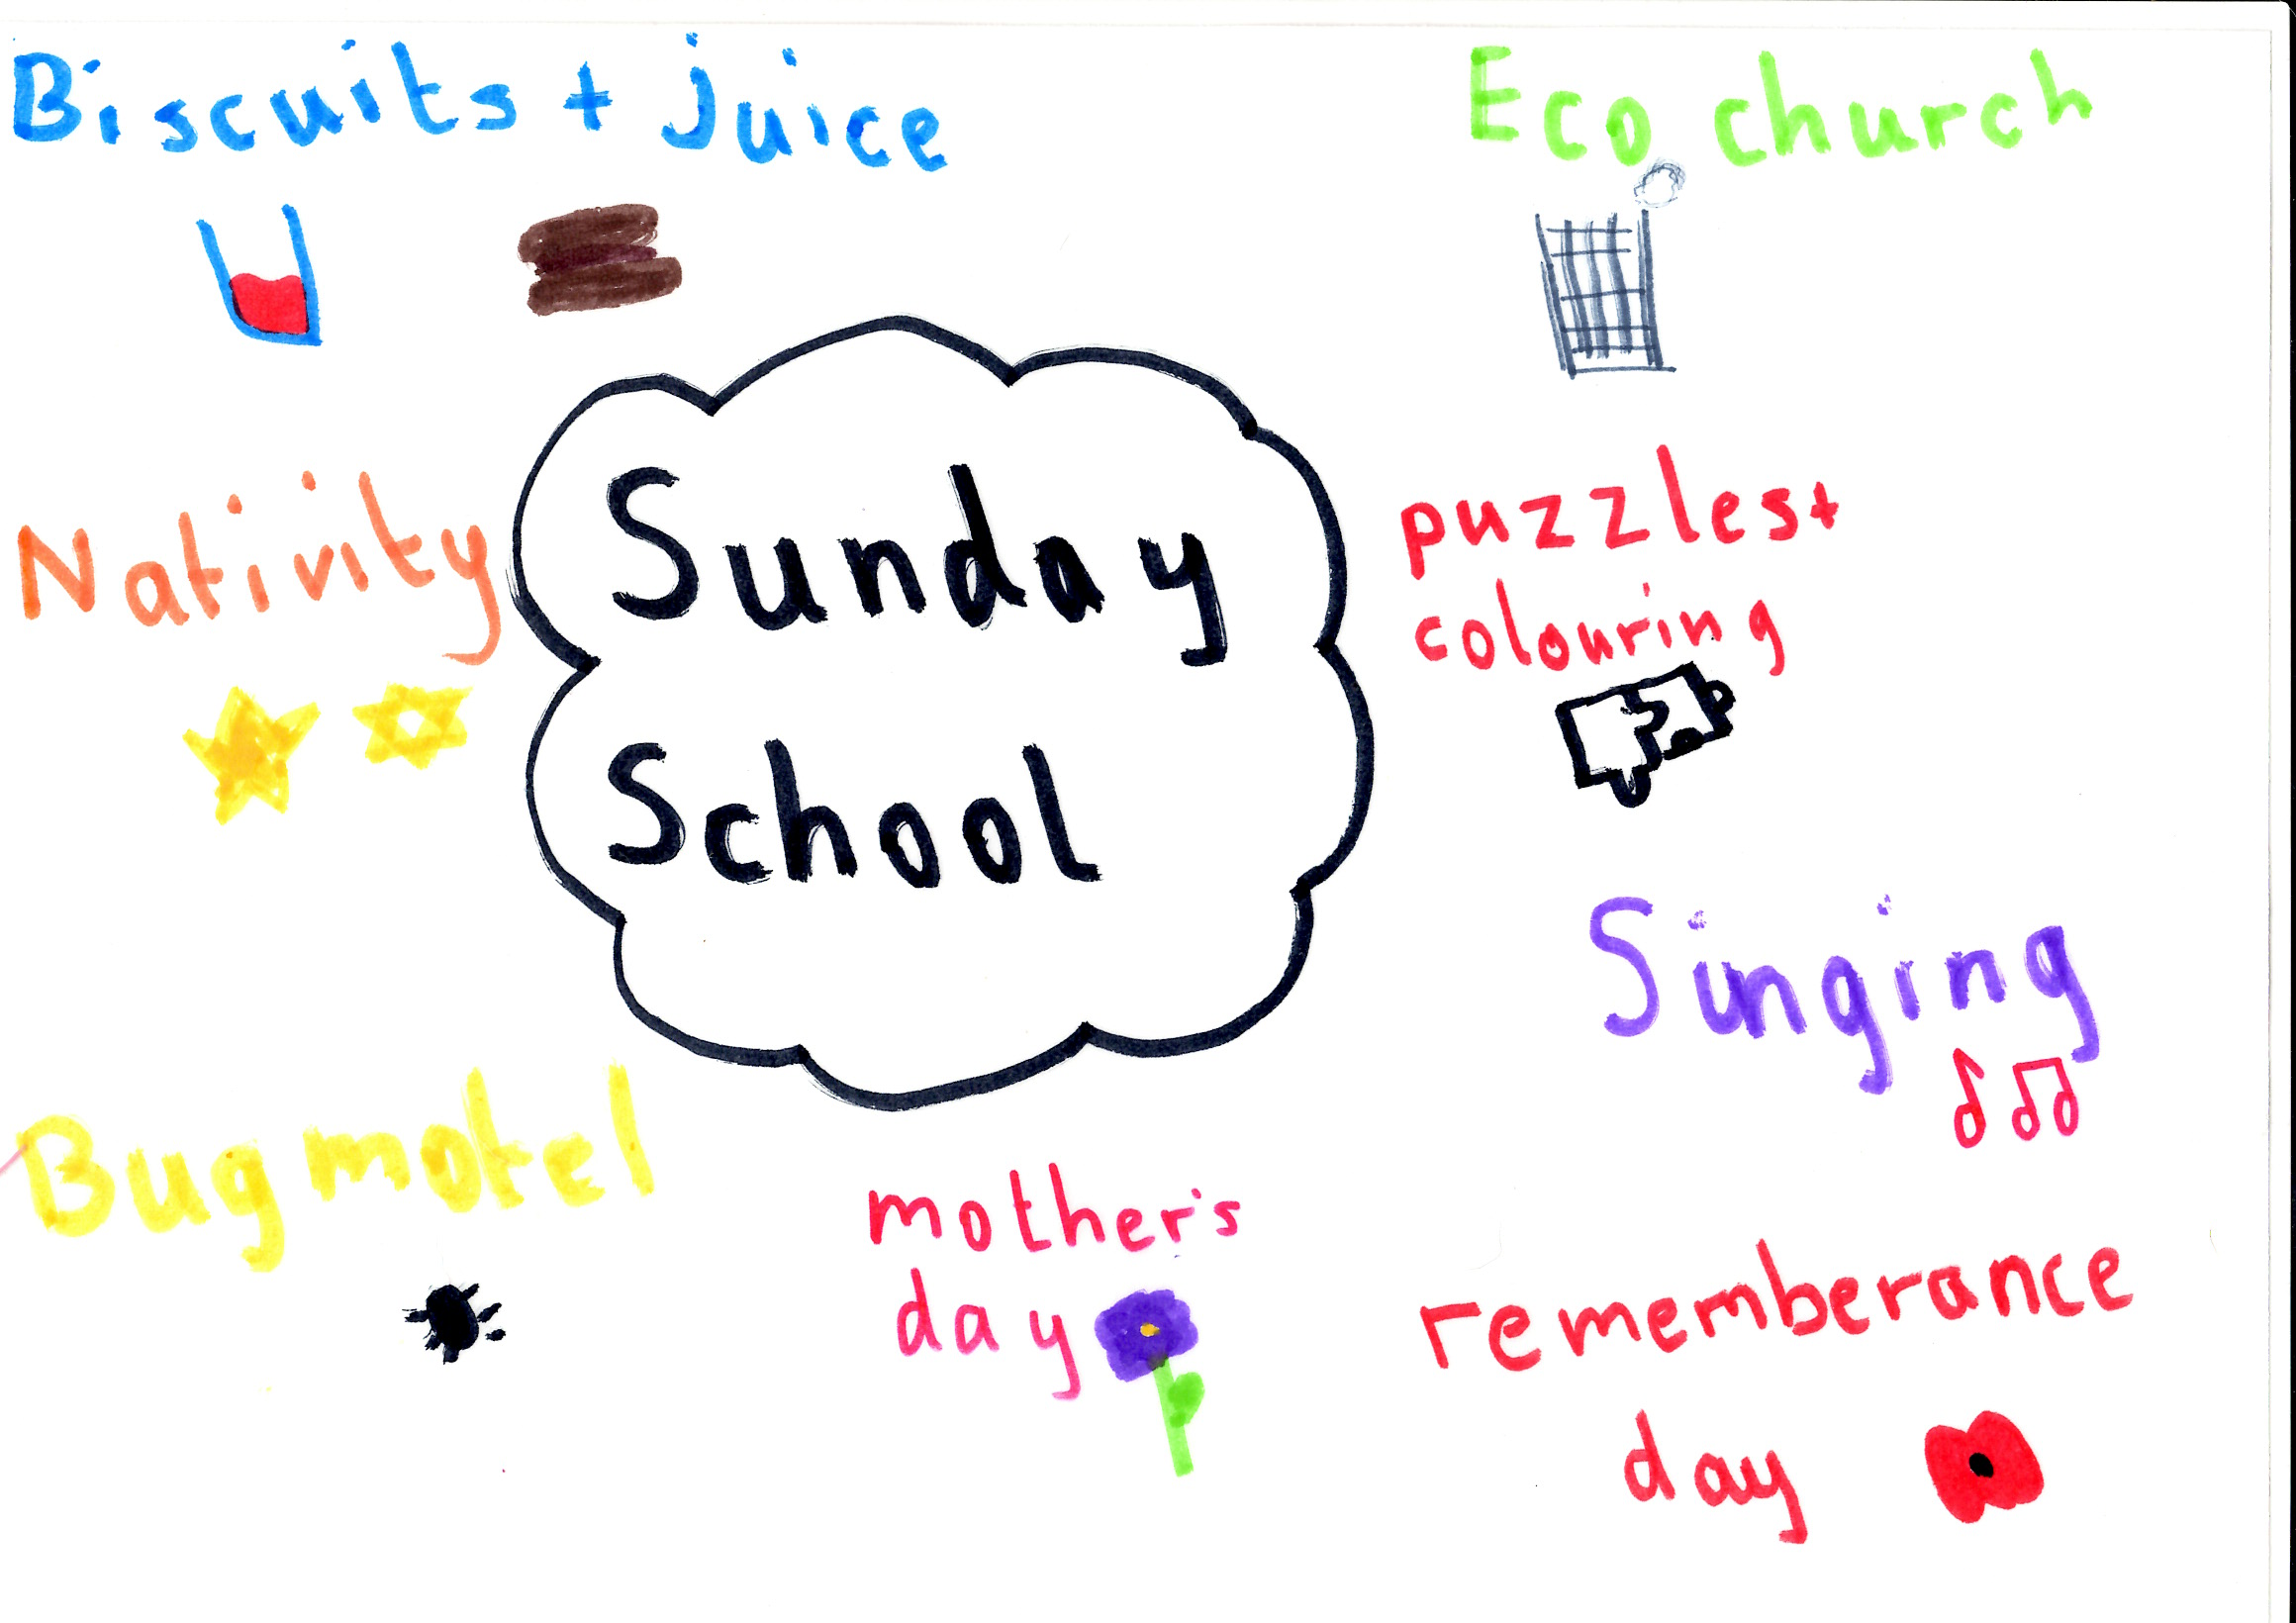 Biscuits + juice
Eco church
Nativity
Sunday
School
puzzles+
colouring
Singing
Bugmotel
mother's
day
rememberance
day